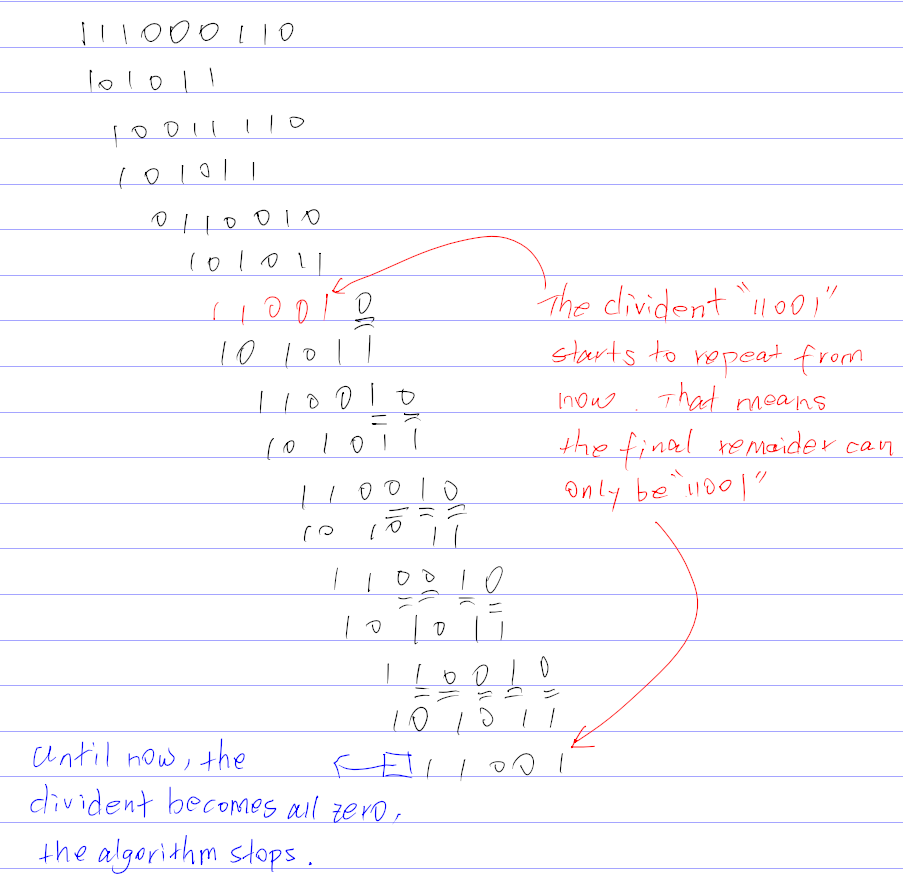 111000110
101011
10011110
101011
0110010
101011
110010
101011
110010
101011
110010
101011
110010
101011
110010
101011
11001
The divident "11001"
starts to repeat from
now. That means
the final remaider can
only be "11001"
until now, the
divident becomes all zero,
the algorithm stops.